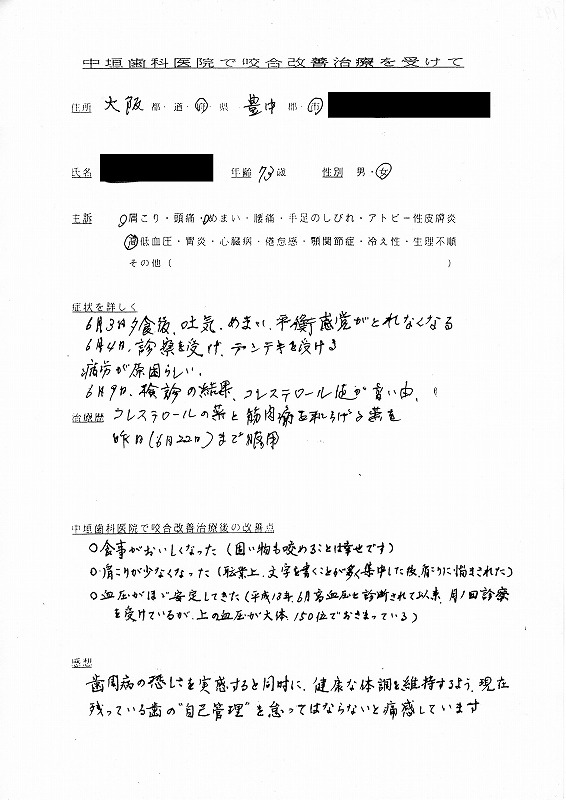 中垣歯科医院で咬合改善治療を受けて
住所 大阪 都・道・府・県 豊中 郡・市
氏名 年齢 73歳 性別 男・女
主訴 肩こり・頭痛・めまい・腰痛・手足のしびれ・アトピー性皮膚炎
高低血圧・胃炎・心臓病・倦怠感・顎関節症・冷え性・生理不順
その他( )
症状を詳しく
6月3日夕食後、吐気、めまい、平衡感覚がとれなくなる
6月4日、診察を受け、テンテキを受ける
疲労が原因らしい、
6月9日、検診の結果、コレステロール値が高い由、
治療歴 コレステロールの薬と筋肉痛を和らげる薬を
昨日(6月22日)まで服用
中垣歯科医院で咬合改善治療後の改善点
○食事がおいしくなった(固い物も咬めることは幸せです)
○肩こりが少なくなった(職業上、文字を書くことが多く集中した後、肩こりに悩まされた)
○血圧がほゞ安定してきた(平成18年、6月高血圧と診断されて以来、月1回診療
を受けているが、上の血圧が大体、150位でおさまっている)
感想
歯周病の恐しさを実感すると同時に、健康な体調を維持するよう、現在
残っている歯の"自己管理"を怠ってはならないと痛感しています